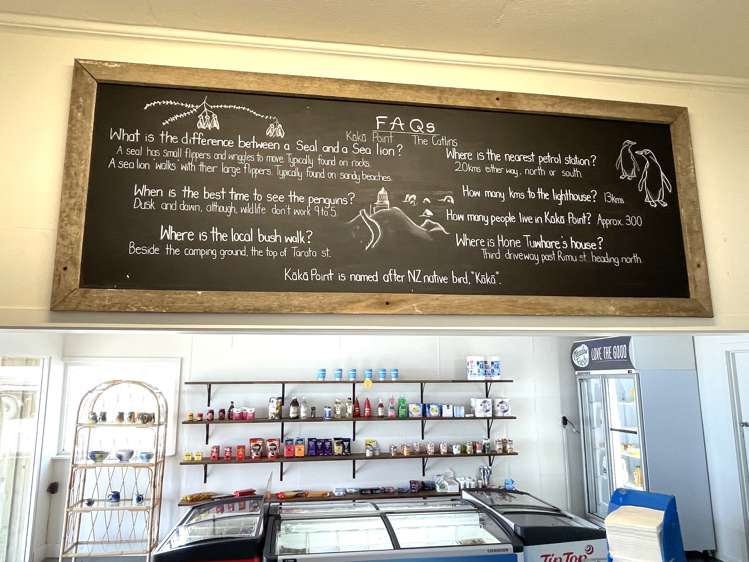 FAQs
Kākā Point The Catlins
What is the difference between a Seal and a Sea lion?
A seal has small flippers and wriggles to move. Typically found on rocks.
A sea lion walks with their large flippers. Typically found on sandy beaches.
When is the best time to see the penguins?
Dusk and dawn, although, wildlife don't work 9 to 5.
Where is the local bush walk?
Beside the camping ground, the top of Tarata st.
Where is the nearest petrol station?
20kms either way, north or south.
How many kms to the lighthouse? 13kms
How many people live in Kākā Point? Approx. 300
Where is Hone Tuwhare's house?
Third driveway past Rimu st. heading north.
Kākā Point is named after NZ native bird, "Kākā".
LOVE THE GOOD
TipTop